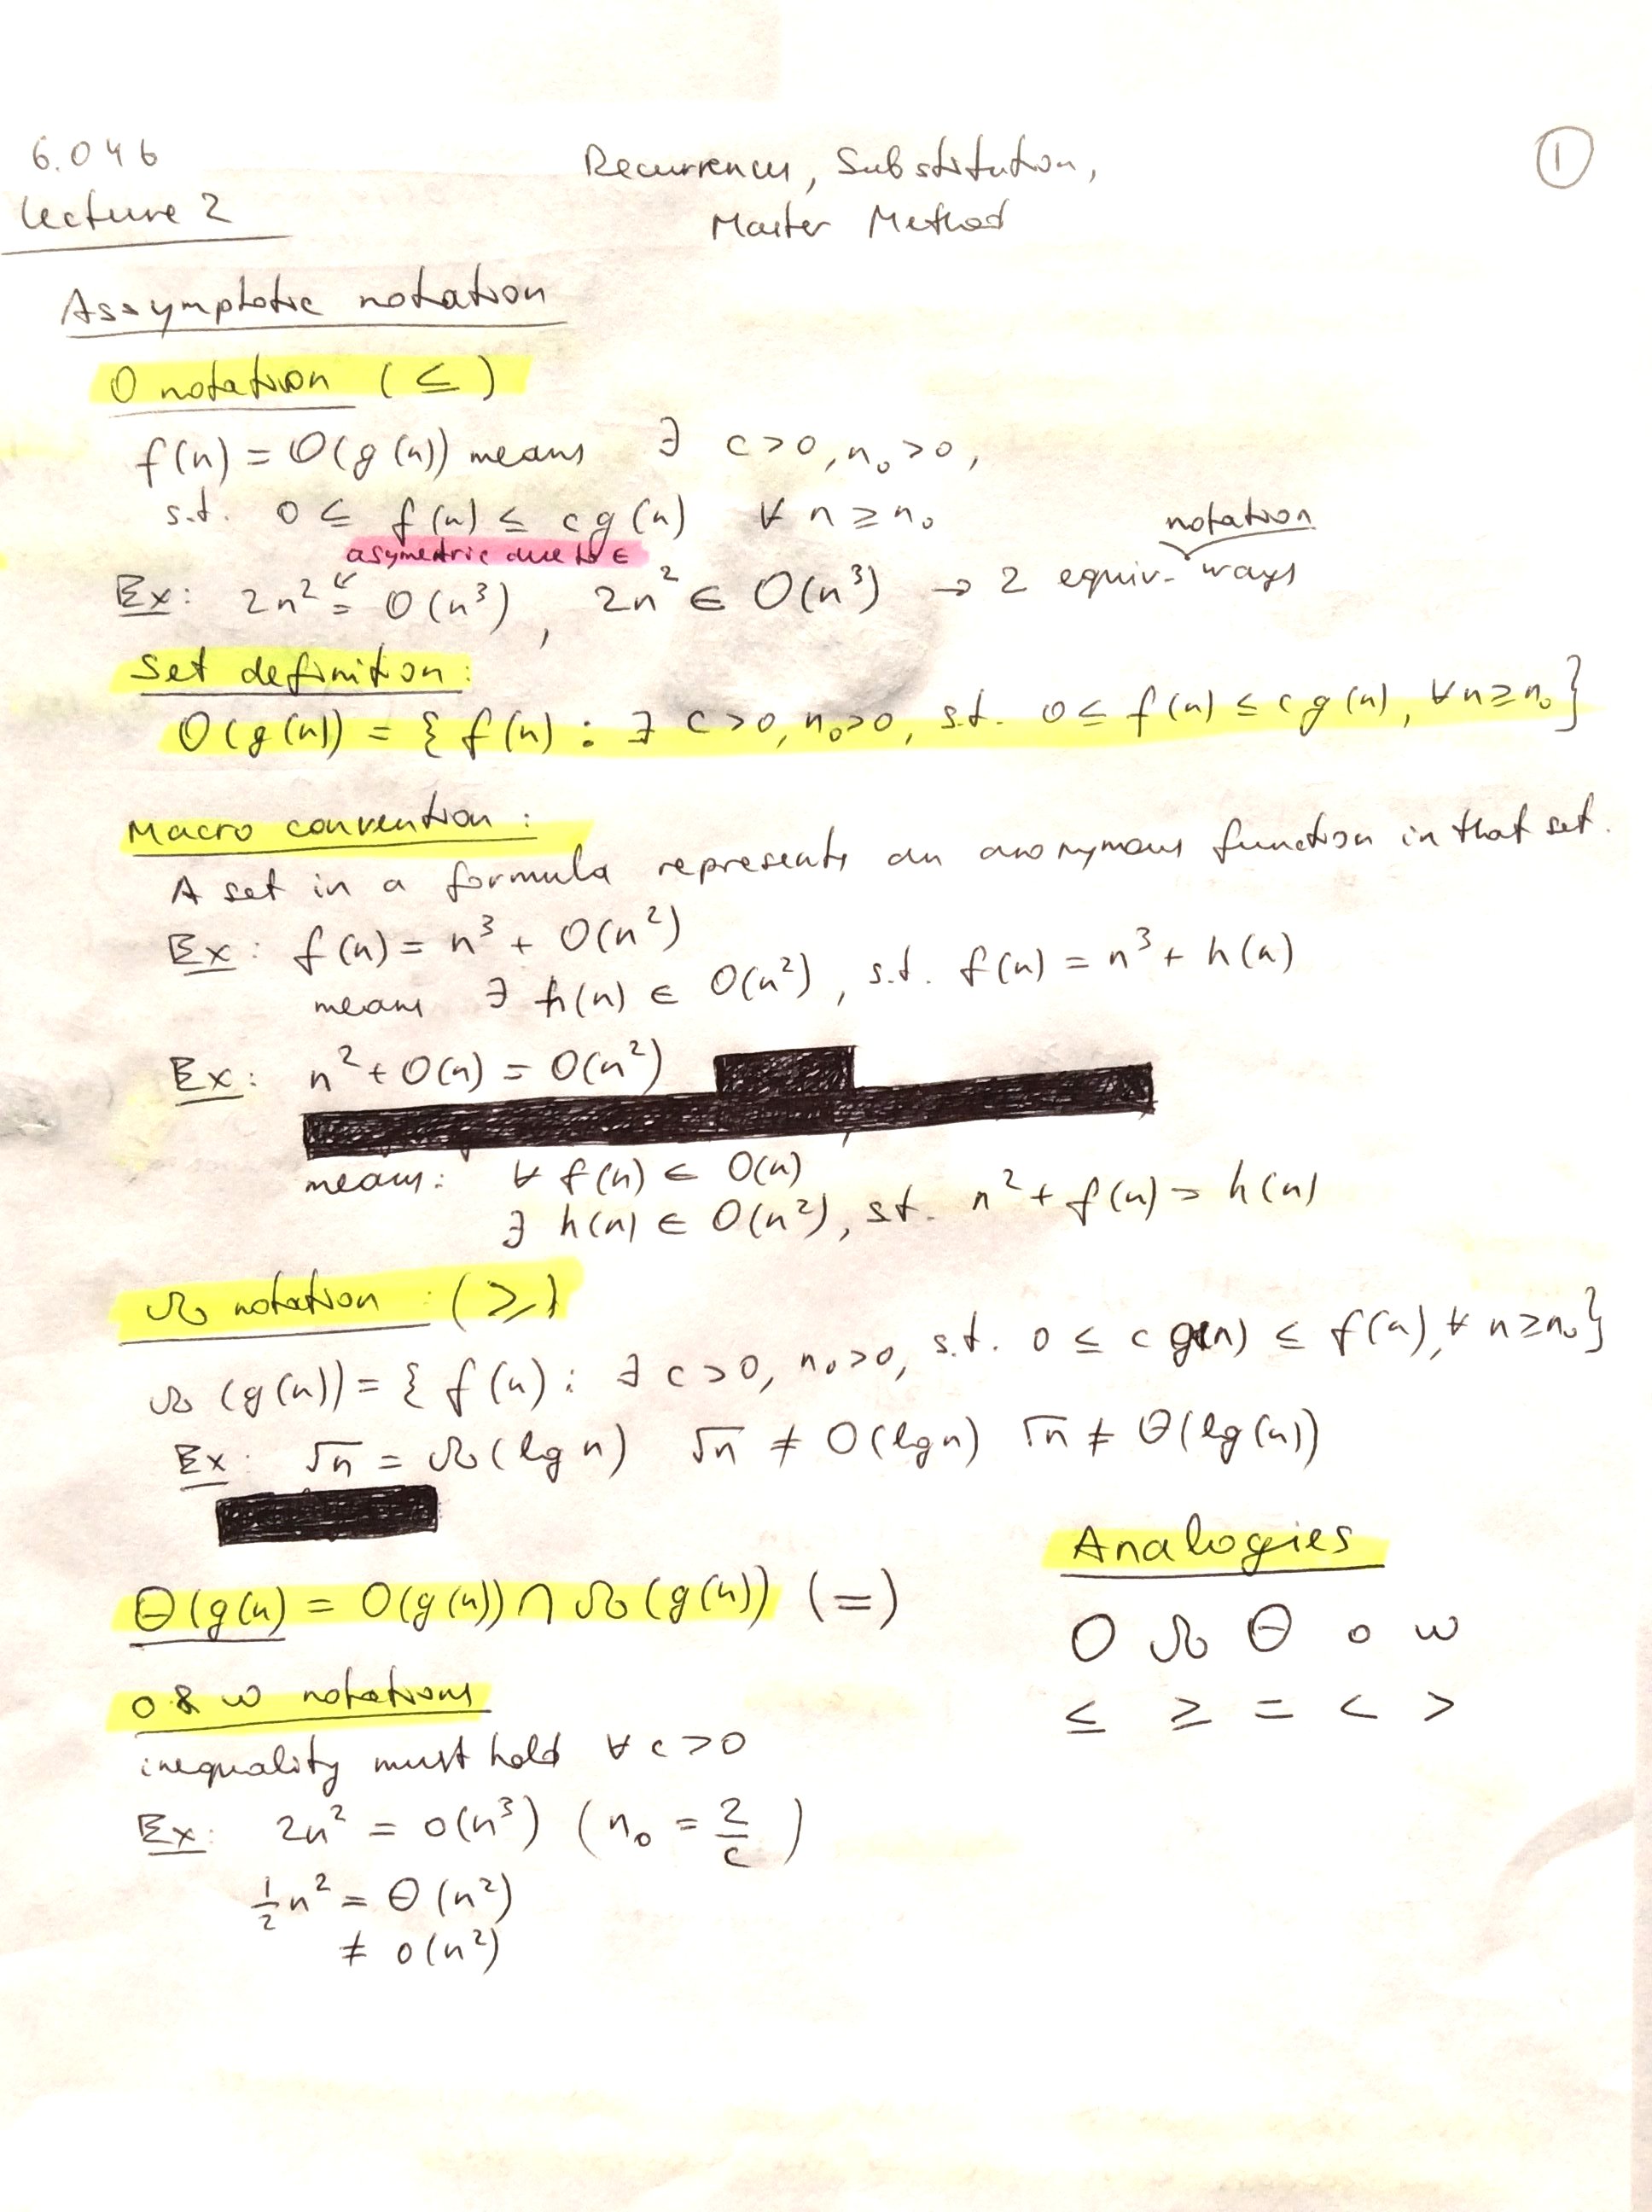 6.046
Recurrences, Substitution,
①
Lecture 2
Master Method
Assymptotic notation
O notation (≤)
f(n) = O(g(n)) means ∃ c>0, n₀>0,
s.t. 0 ≤ f(n) ≤ cg(n) ∀ n ≥ n₀
notation
asymetric due to ∈
Ex: 2n² = O(n³), 2n² ∈ O(n³) → 2 equiv. ways
Set definition:
O(g(n)) = { f(n) : ∃ c>0, n₀>0, s.t. 0 ≤ f(n) ≤ cg(n), ∀n≥n₀}
Macro convention:
A set in a formula represents an anonymous function in that set.
Ex: f(n) = n³ + O(n²)
means ∃ h(n) ∈ O(n²), s.t. f(n) = n³ + h(n)
Ex: n² + O(n) = O(n²)
means: ∀ f(n) ∈ O(n)
∃ h(n) ∈ O(n²), st. n² + f(n) = h(n)
Ω notation : (≥)
Ω(g(n)) = { f(n) : ∃ c>0, n₀>0, s.t. 0 ≤ c g(n) ≤ f(n), ∀ n≥n₀}
Ex: √n = Ω(lg n) √n ≠ O(lg n) √n ≠ Θ(lg(n))
Analogies
Θ(g(n) = O(g(n)) ∩ Ω(g(n)) (=)
O Ω Θ o ω
≤ ≥ = < >
o & ω notations
inequality must hold ∀ c>0
Ex: 2n² = o(n³) (n₀ = 2/c)
½n² = Θ(n²)
≠ o(n²)